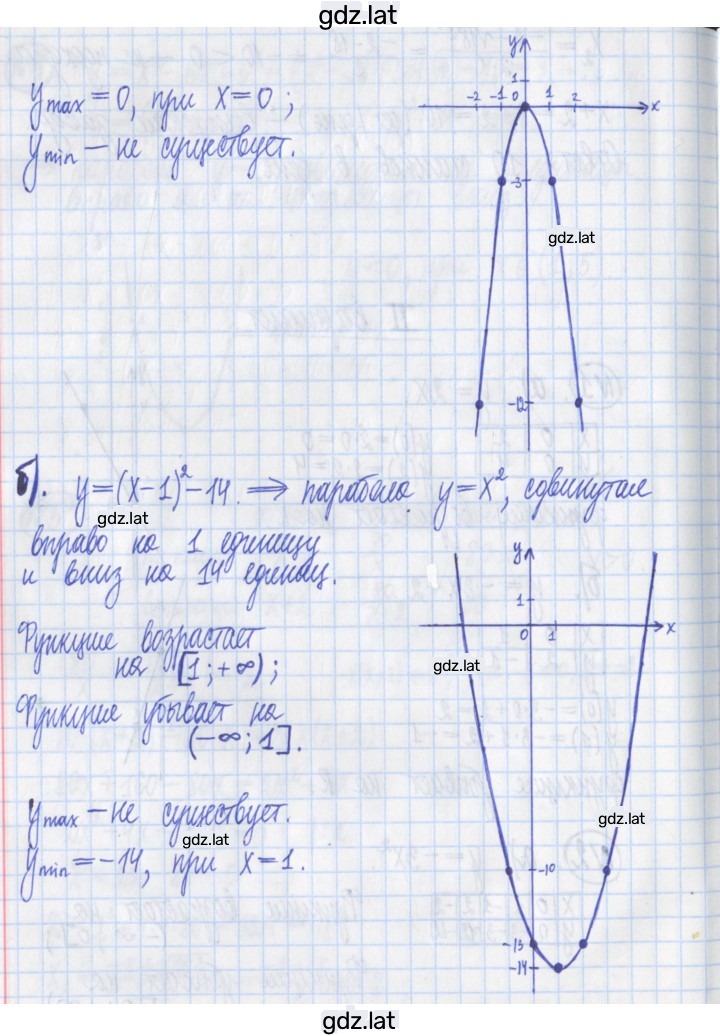 gdz.lat
y max = 0, при x = 0 ;
y min – не существует.
y
1
-2 -1 0 1 2 x
-3
gdz.lat
-12
б). y = (x – 1)² – 14. ⟹ парабола y = x², сдвинутая
gdz.lat
вправо на 1 единицу
и вниз на 14 единиц.
y
1
0 1 x
Функция возрастает
на [1 ; +∞) ;
gdz.lat
gdz.lat
Функция убывает на
(–∞ ; 1].
y max – не существует.
gdz.lat
gdz.lat
y min = –14, при x = 1.
-10
-13
-14
gdz.lat